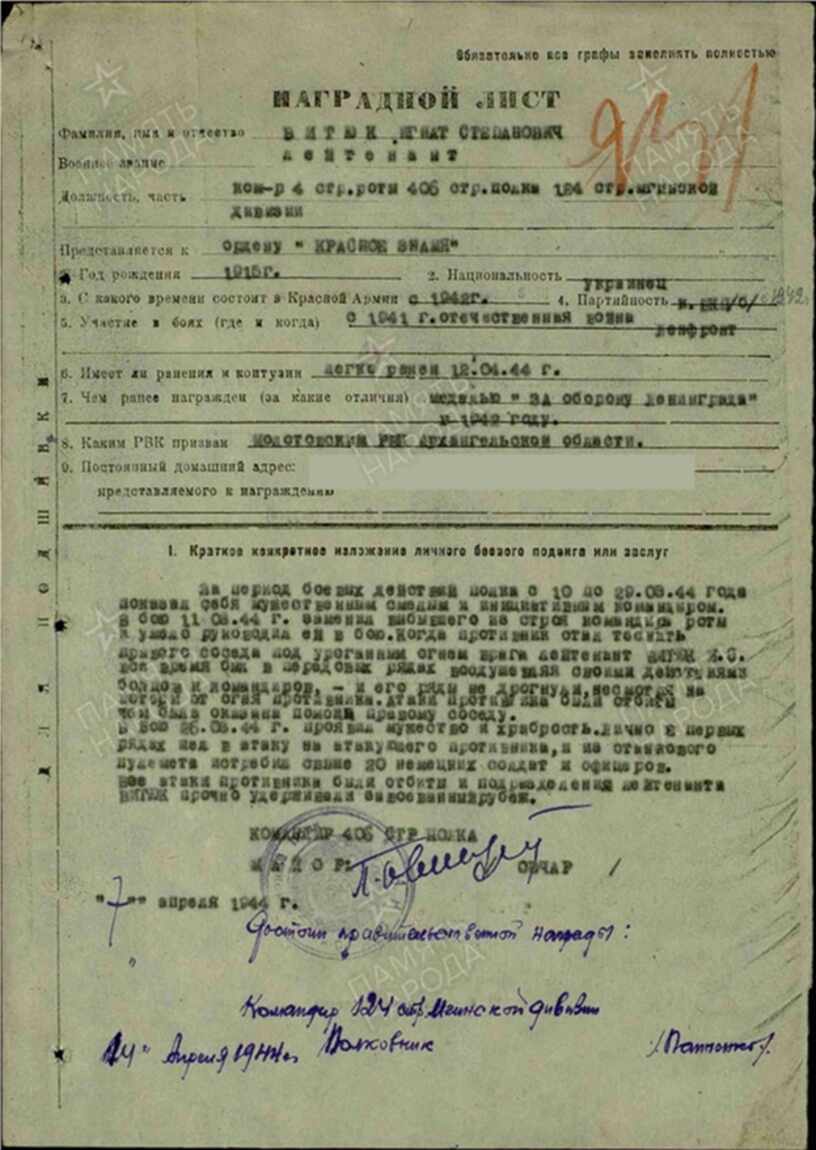 Обязательно все графы заполнять полностью
НАГРАДНОЙ ЛИСТ
Фамилия, имя и отчество ВИТЮК ИГНАТ СТЕПАНОВИЧ
Военное звание лейтенант
Должность, часть ком-р 4 стр.роты 406 стр.полка 124 стр.мгинской
дивизии
Представляется к ордену " КРАСНОЕ ЗНАМЯ"
1. Год рождения 1915г. 2. Национальность украинец
3. С какого времени состоит в Красной Армии с 1942г. 4. Партийность 1942
5. Участие в боях (где и когда) с 1941 г.отечественная война
ленфронт
6. Имеет ли ранения и контузии легко ранен 12.04.44 г.
7. Чем ранее награжден (за какие отличия) медалью " ЗА оборону Ленинграда"
в 1942 году.
8. Каким РВК призван Молотовским РВК Архангельской области.
9. Постоянный домашний адрес:
представляемого к награждению
ДЛЯ ПОДШИВКИ
I. Краткое конкретное изложение личного боевого подвига или заслуг
За период боевых действий полка с 10 по 29.03.44 года
показал себя мужественным смелым и инициативным командиром.
В бою 11.03.44 г. заменил выбывшего из строя командира роты
и умело руководил ей в бою.Когда противник стал теснить
правого соседа под ураганным огнем врага лейтенант ВИТЮК И.С.
все время был в передовых рядах воодушевляя своими действиями
бойцов и командиров, - и его ряды не дрогнули,несмотря на
потери от огня противника.Атаки противника были отбиты
чем была оказана помощь правому соседу.
В бою 26.03.44 г. проявил мужество и храбрость.Лично в первых
рядах шел в атаку на атакующего противника,и из станкового
пулемета истребил свыше 20 немецких солдат и офицеров.
Все атаки противника были отбиты и подразделения лейтенанта
ВИТЮК прочно удерживали завоеванныйрубеж.
КОМАНДИР 406 СТР.ПОЛКА
МАЙОР: ОВЧАР /
"7" апреля 1944 г.
Достоин правительственной награды:
Командир 124 стр.Мгинской дивизии
14" Апреля 1944г. Полковник /Папченко/.
ПАМЯТЬ НАРОДА